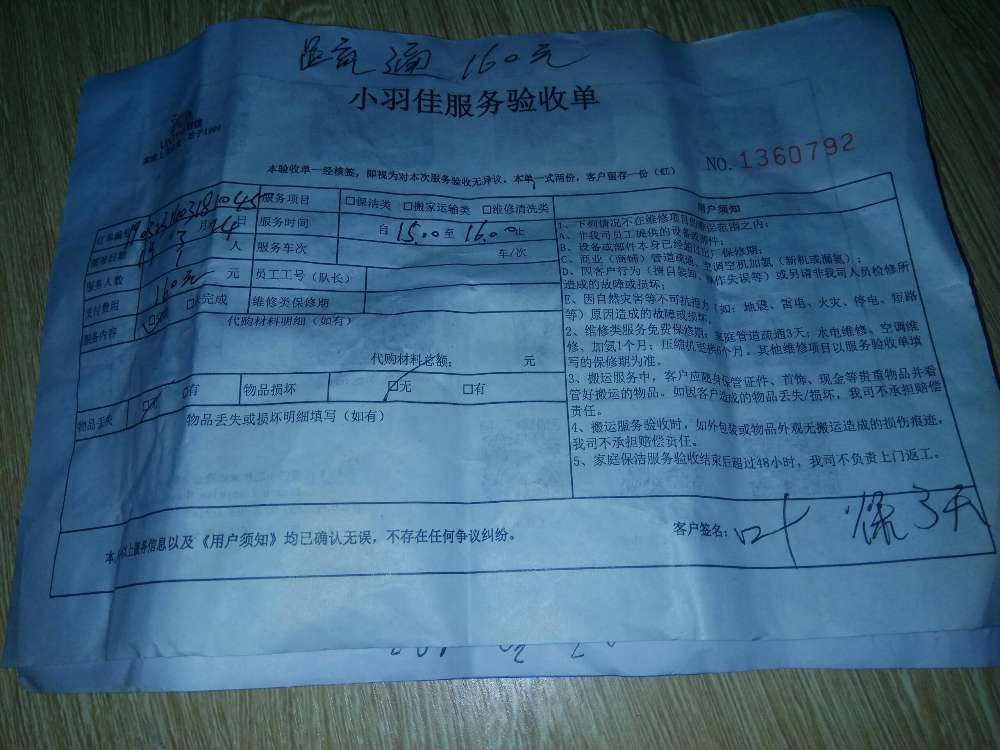 通 160元
小羽佳服务验收单
NO.1360792
本验收单一经核签，即视为对本次服务验收无异议。本单一式两份，客户留存一份（红）
服务项目 □保洁类 □搬家运输类 □维修清洗类
日 服务时间 自 15.00 至 16.00 止
服务人数 人 服务车次 车/次
支付费用 160元 元 员工工号（队长）
服务内容 未完成 维修类保修期
代购材料明细（如有）
代购材料总额： 元
物品丢失 □无 □有 物品损坏 □无 □有
物品丢失或损坏明细填写（如有）
用户须知
1、下列情况不在维修项目的保范围之内：
A、非我司员工提供的设备或部件；
B、设备或部件本身已经过出厂保修期；
C、商业（商研）管道疏通、空调空机加氨（新机或漏氨）；
D、因客户行为（擅自装卸、操作失误等）或另请非我司人员检修所造成的故障或损坏；
E、因自然灾害等不可抗拒力（如：地震、雷电、火灾、停电、短路等）原因造成的故障或损坏；
2、维修类服务免费保修期：家庭管道疏通3天；水电维修、空调维修、加氨1个月；压缩机更换6个月。其他维修项目以服务验收单填写的保修期为准。
3、搬运服务中，客户应随身保管证件、首饰、现金等贵重物品并看管好搬运的物品。如因客户造成的物品丢失/损坏，我司不承担赔偿责任。
4、搬运服务验收时，如外包装或物品外观无搬运造成的损伤痕迹，我司不承担赔偿责任。
5、家庭保洁服务验收结束后超过48小时，我司不负责上门返工。
本人以上服务信息以及《用户须知》均已确认无误，不存在任何争议纠纷。
客户签名：叶
保3天